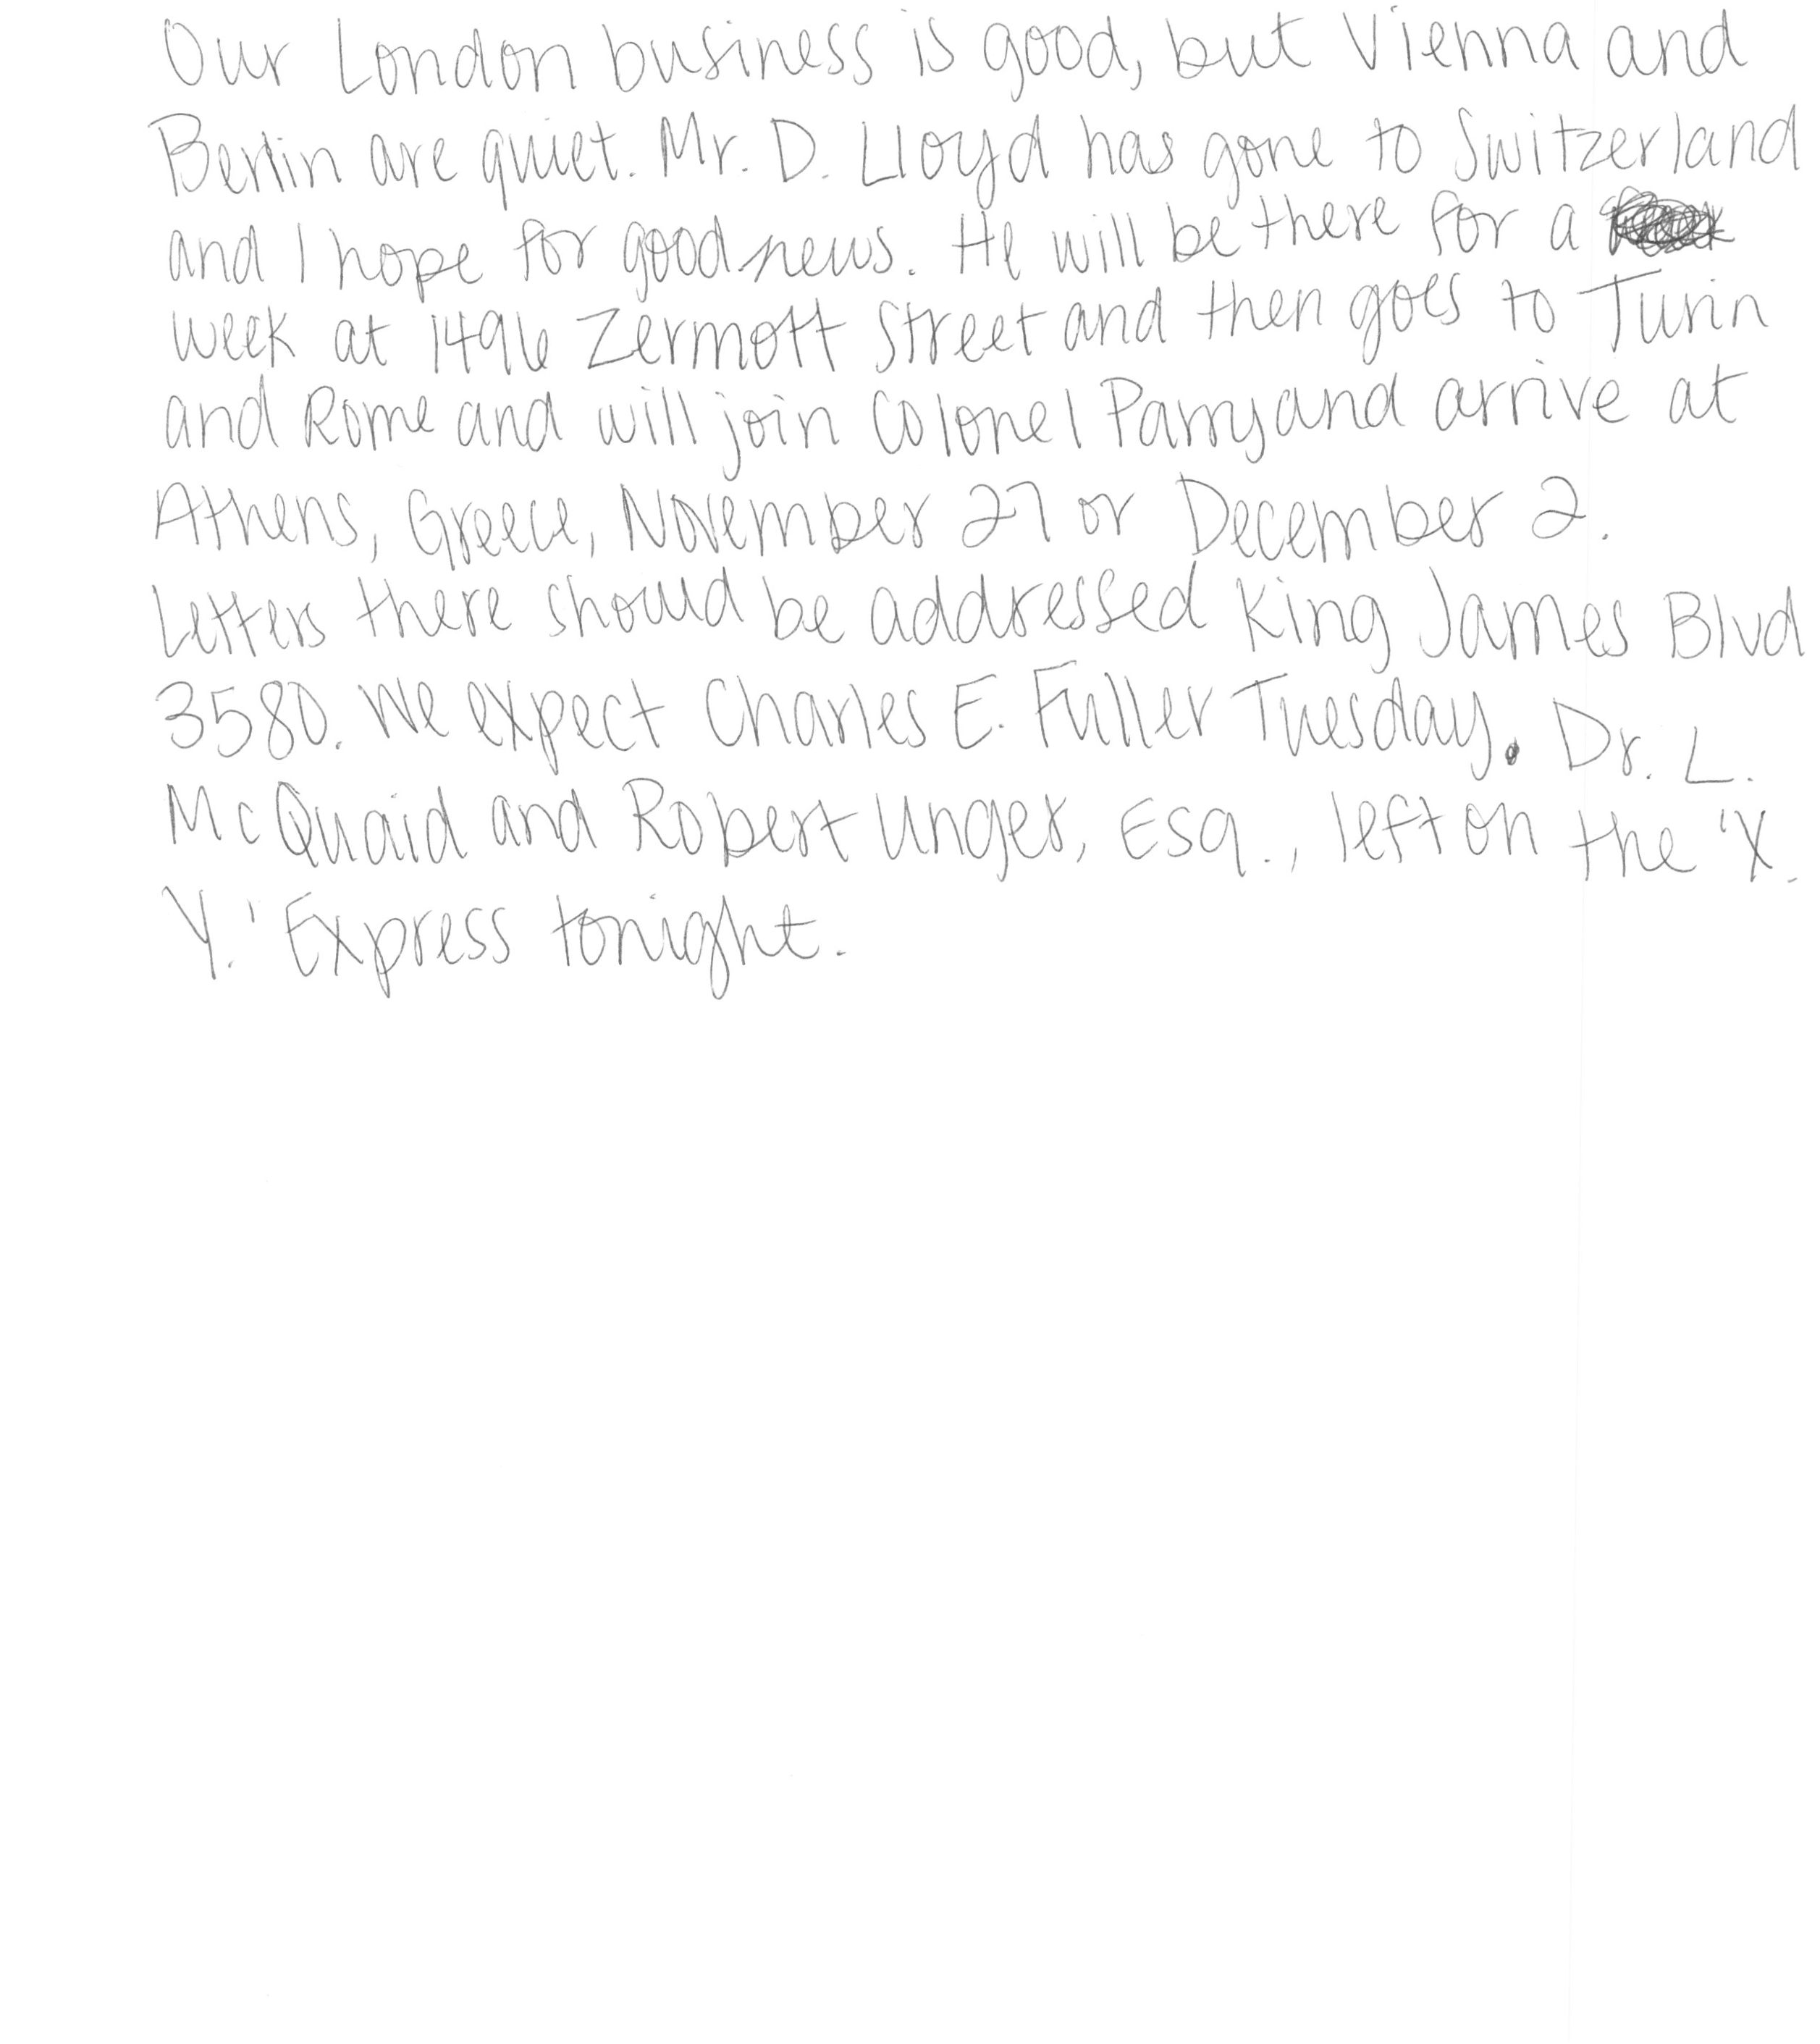 Our London business is good, but Vienna and
Berlin are quiet. Mr. D. Lloyd has gone to Switzerland
and I hope for good news. He will be there for a
week at 1496 Zermott Street and then goes to Turin
and Rome and will join Colonel Parry and arrive at
Athens, Greece, November 27 or December 2.
Letters there should be addressed King James Blvd
3580. We expect Charles E. Fuller Tuesday. Dr. L.
McQuaid and Robert Unger, Esq., left on the 'X.
Y.' Express tonight.